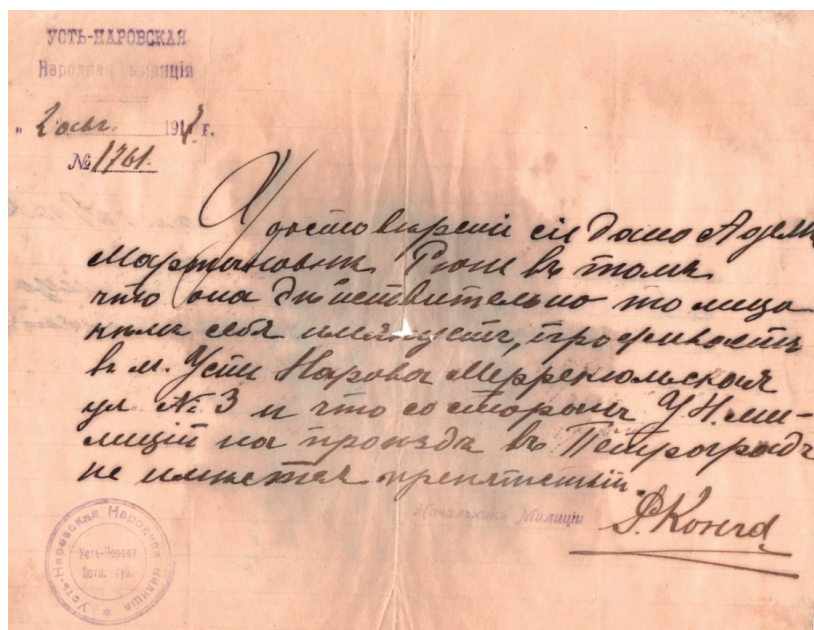 УСТЬ-НАРОВСКАЯ
Народная милицiя
" 2 окт. 1917 г.
№ 1761.
Удостоверенiе сiе дано Адели
Мартыновне Рюн въ томъ
что она действительно то лицо
кемъ себя именуетъ, проживаетъ
въ м. Усть Нарова Меррекюльская
ул № 3 и что со стороны У Н. ми-
лицiй на проездъ въ Петроградъ
не имеется препятствiй.
Начальникъ Милицiи
Усть-Наровская Народная милицiя *
Усть-Нарова
Эстл. губ.